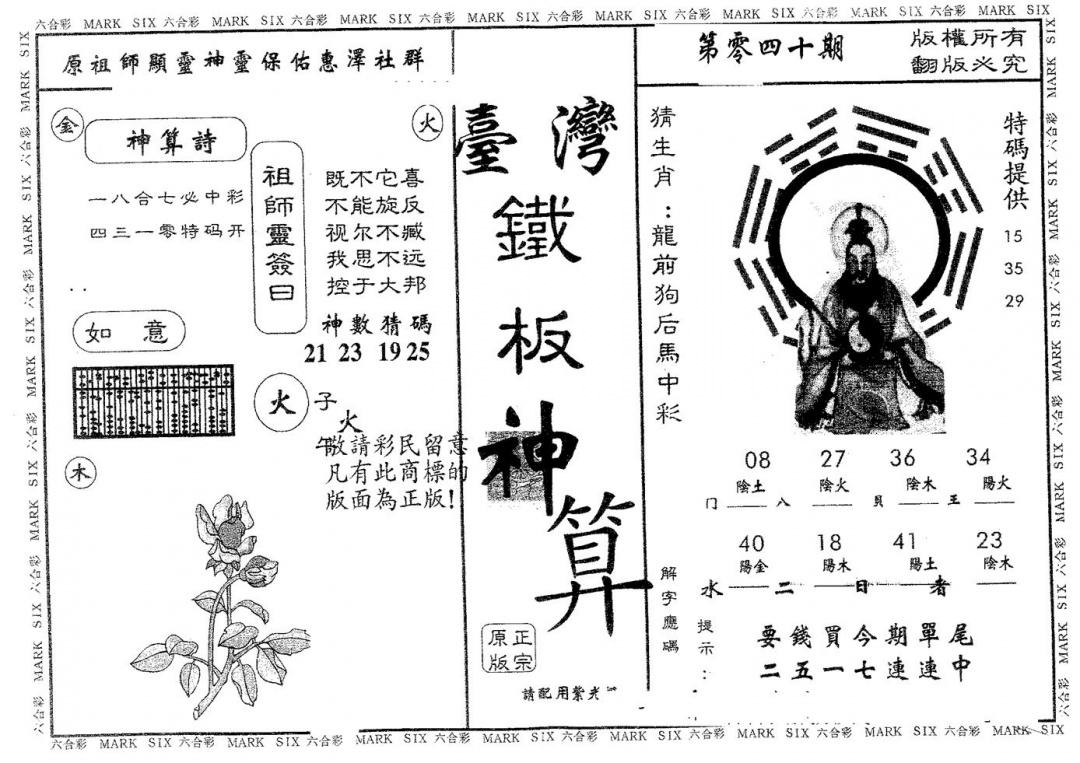 六合彩 MARK SIX 六合彩 MARK SIX 六合彩 MARK SIX 六合彩 MARK SIX 六合彩 MARK SIX 六合彩 MARK SIX 六合彩 MARK SIX 六合彩 MARK SIX
原祖師顯靈神靈保佑惠澤社群
金
神算詩
火
一八合七必中彩
四三一零特码开
祖師靈簽曰
既不它喜
不能旋反
视尔不臧
我思不远
控于大邦
神數猜碼
21 23 19 25
如 意
火
子
火
午
敬請彩民留意
凡有此商標的
版面為正版!
木
臺灣
鐵板神算
正宗
原版
請配用紫光
第零四十期
版權所有
翻版必究
猜生肖:龍前狗后馬中彩
特碼提供
15
35
29
08 27 36 34
陰土 陰火 陰木 陽火
门 八 貝 王
40 18 41 23
陽金 陽木 陽土 陰木
水 二 日 者
解字應碼
提示:
要錢買今期單尾
二五一七連連中
六合彩 MARK SIX 六合彩 MARK SIX 六合彩 MARK SIX 六合彩 MARK SIX 六合彩 MARK SIX 六合彩 MARK SIX 六合彩 MARK SIX 六合彩 MARK SIX